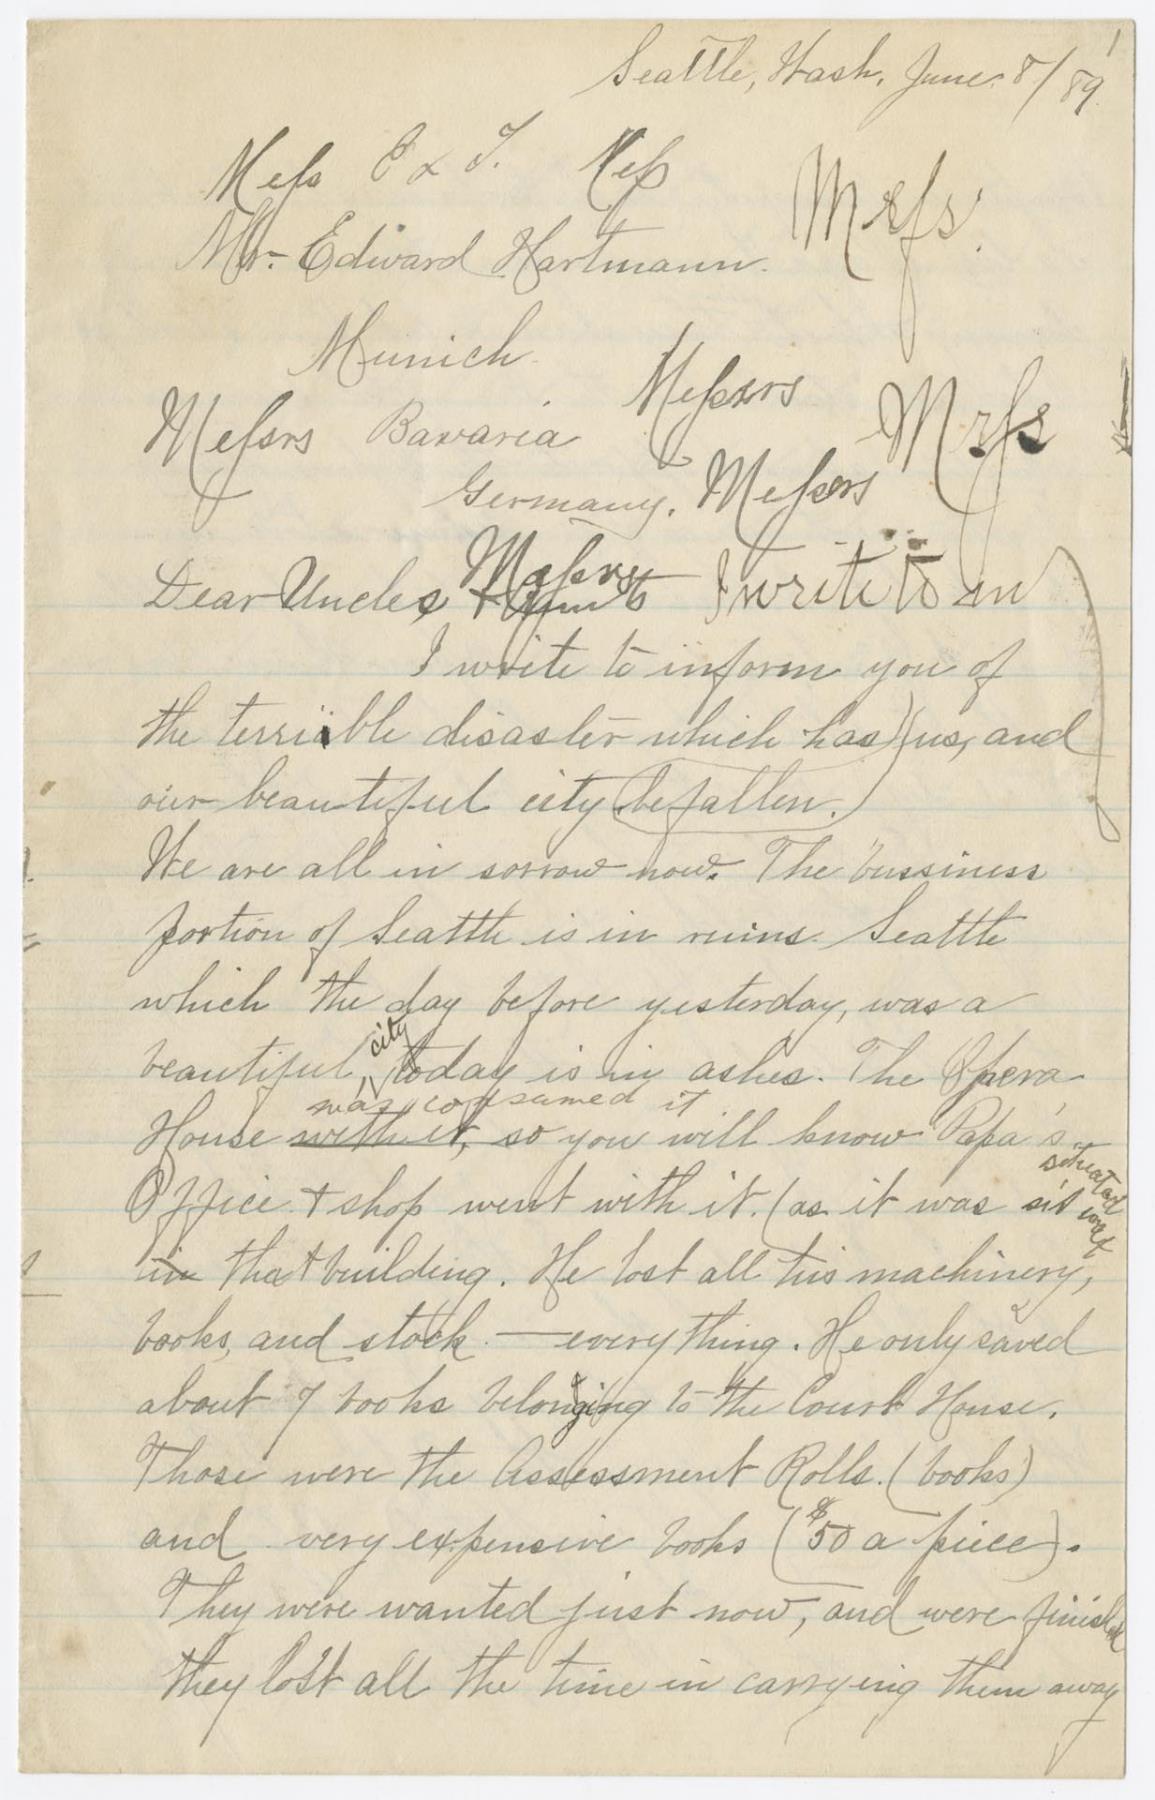 1
Seattle, Wash. June 8/89.
Mess E & T. Mess
Messrs.
Mr. Edward Hartmann.
Munich.
Messrs
Messrs Bavaria
Messrs
Germany. Messrs
Messrs
Dear Uncles I write to in
I write to inform you of
the terrible disaster which has) (us, and
our beautiful city (befallen.)
We are all in sorrow now. The bussiness
portion of Seattle is in ruins. Seattle
which the day before yesterday, was a
city
beautiful, today is in ashes. The Opera
was consumed it
House with it, so you will know Papa's
situated
Office + shop went with it. (as it was sit
in that building. He lost all his machinery,
books, and stock — everything. He only saved
about 7 books belonging to the Court House.
Those were the Assessment Rolls. (books)
and very expensive books ($50 a piece).
They were wanted just now, and were finished
they lost all the time in carrying them away